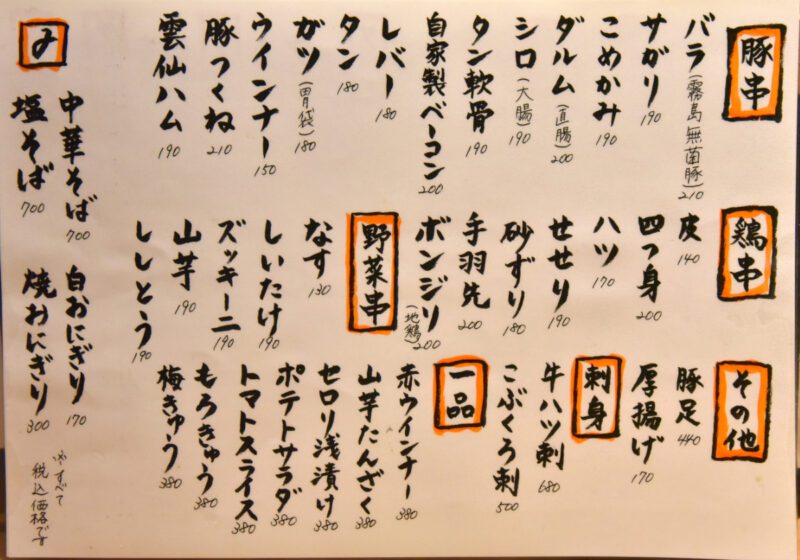 豚串
バラ(霧島無菌豚)210
サガリ190
こめかみ190
ダルム(直腸)200
シロ(大腸)190
タン軟骨190
自家製ベーコン200
レバー180
タン180
ガツ(胃袋)180
ウインナー150
豚つくね210
雲仙ハム190
鶏串
皮140
四つ身200
ハツ170
せせり190
砂ずり180
手羽先200
ボンジリ(地鶏)200
野菜串
なす130
しいたけ190
ズッキーニ190
山芋190
ししとう190
その他
豚足440
厚揚げ170
刺身
牛ハツ刺680
こぶくろ刺500
一品
赤ウインナー380
山芋たんざく380
セロリ浅漬け380
ポテトサラダ380
トマトスライス380
もろきゅう380
梅きゅう380
〆
中華そば700
塩そば700
白おにぎり170
焼おにぎり300
すべて
税込価格です